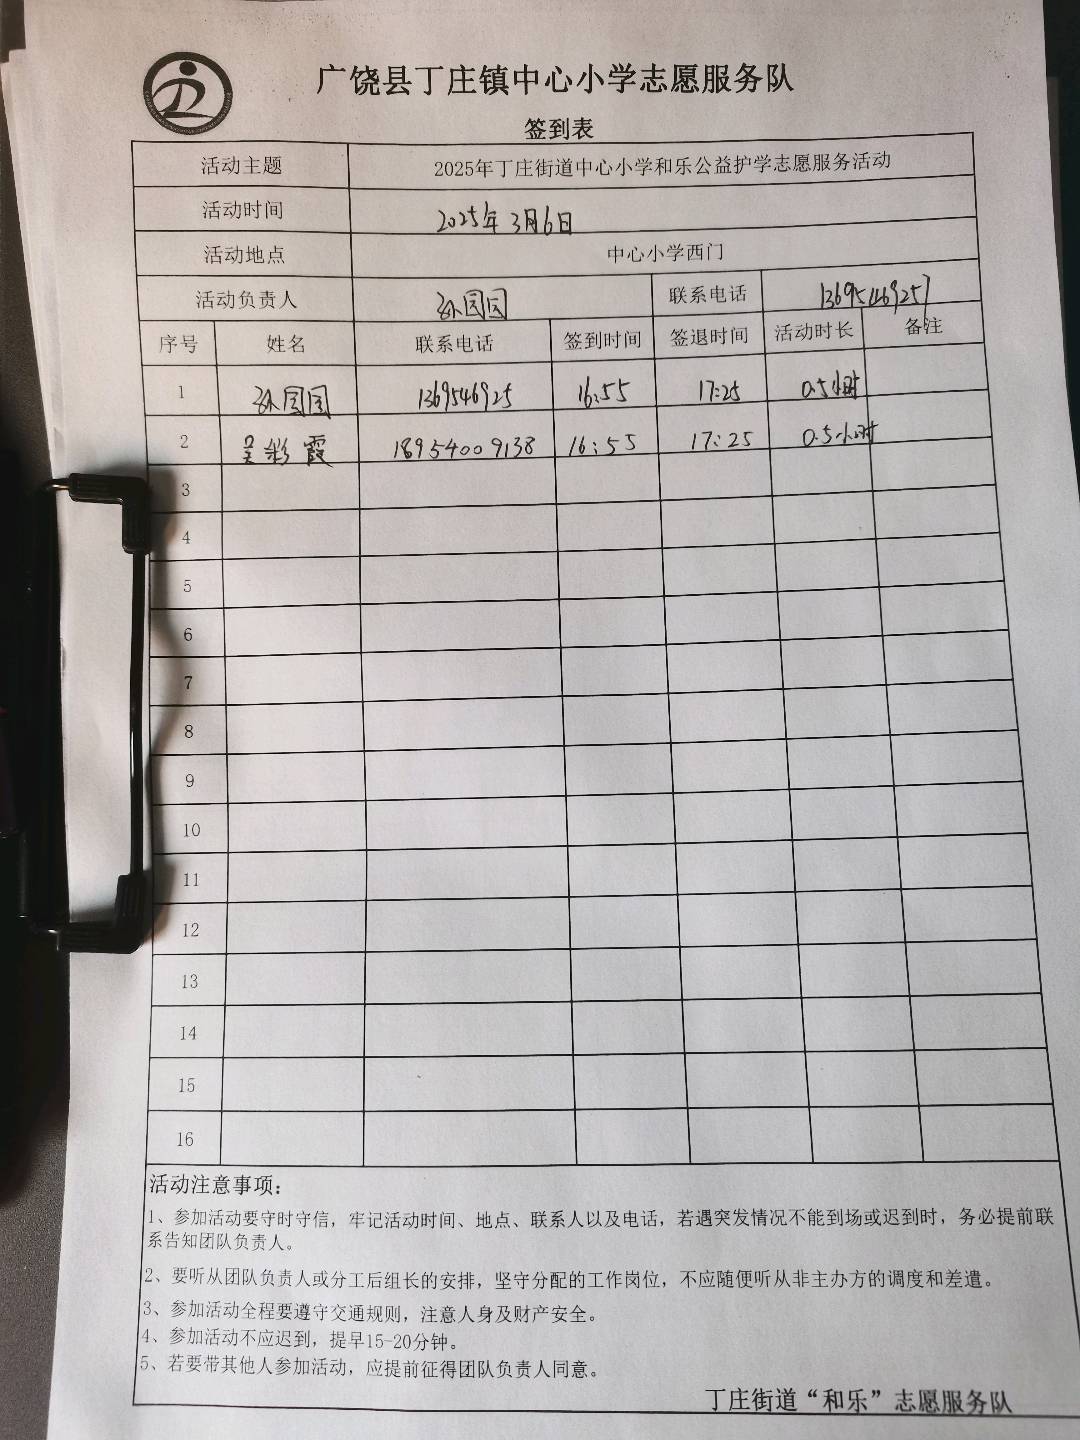 广饶县丁庄镇中心小学志愿服务队
签到表
活动主题 2025年丁庄街道中心小学和乐公益护学志愿服务活动
活动时间 2025年3月6日
活动地点 中心小学西门
活动负责人 孙园园 联系电话 13695469257
序号 姓名 联系电话 签到时间 签退时间 活动时长 备注
1 孙园园 1369546925 16:55 17:25 0.5小时
2 吴彩霞 18954009138 16:55 17:25 0.5小时
3
4
5
6
7
8
9
10
11
12
13
14
15
16
活动注意事项：
1、参加活动要守时守信，牢记活动时间、地点、联系人以及电话，若遇突发情况不能到场或迟到时，务必提前联
系告知团队负责人。
2、要听从团队负责人或分工后组长的安排，坚守分配的工作岗位，不应随便听从非主办方的调度和差遣。
3、参加活动全程要遵守交通规则，注意人身及财产安全。
4、参加活动不应迟到，提早15-20分钟。
5、若要带其他人参加活动，应提前征得团队负责人同意。
丁庄街道“和乐”志愿服务队